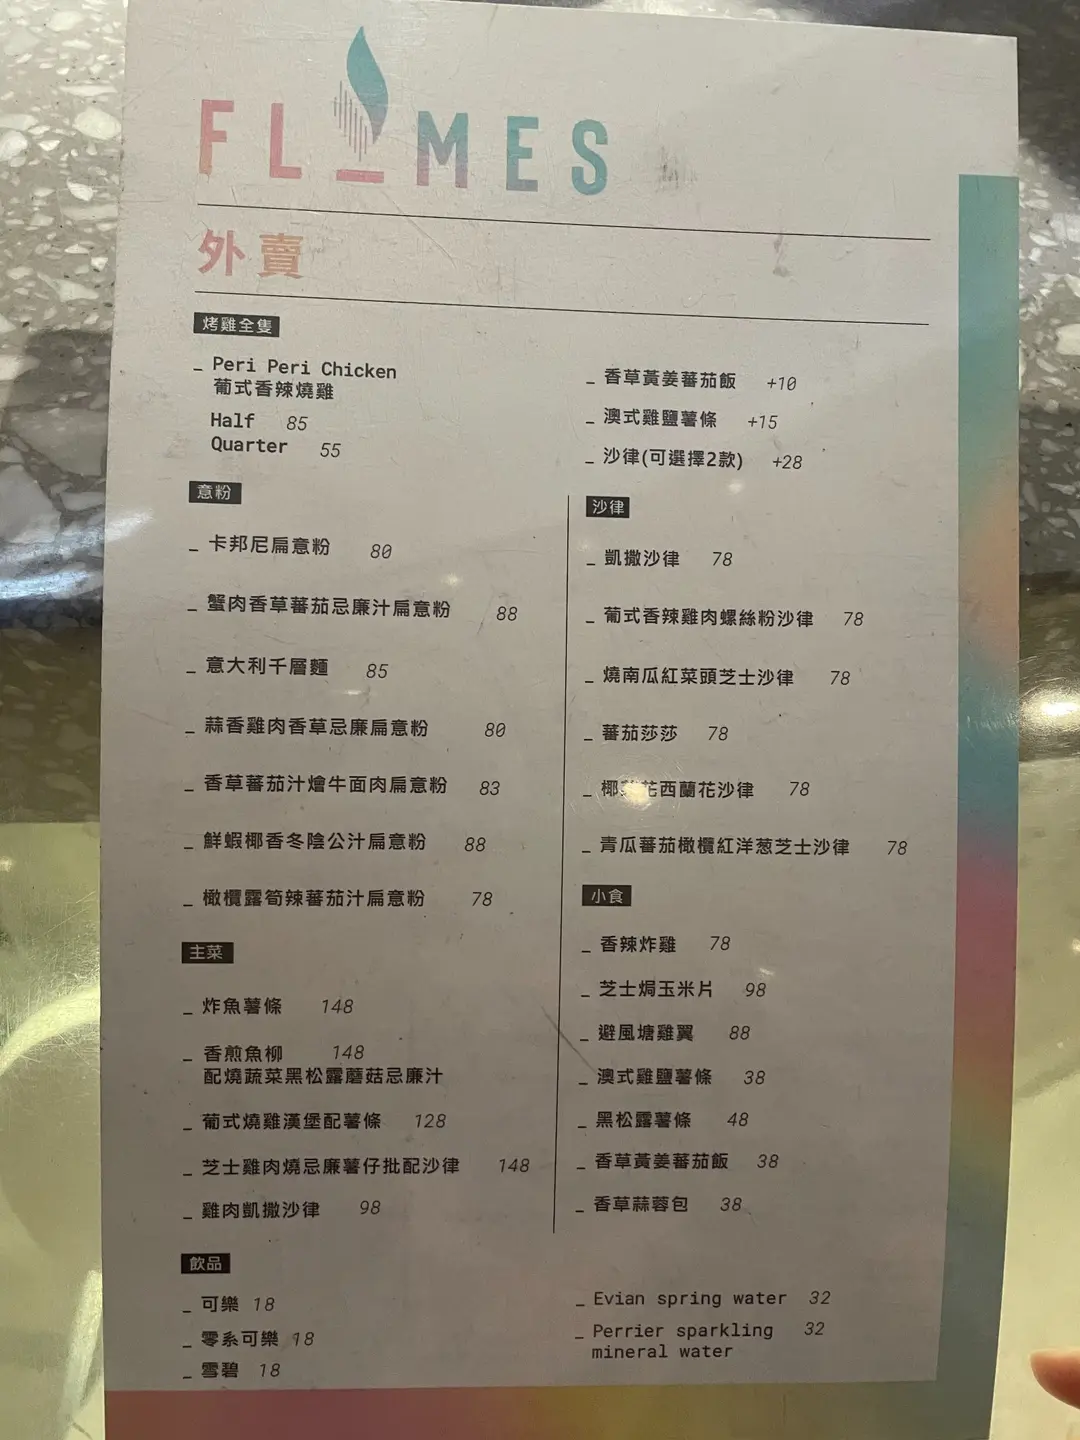 FLAMES
外賣
烤雞全隻
_ Peri Peri Chicken
葡式香辣燒雞
Half 85
Quarter 55
_ 香草黃姜蕃茄飯 +10
_ 澳式雞鹽薯條 +15
_ 沙律(可選擇2款) +28
意粉
_ 卡邦尼扁意粉 80
_ 蟹肉香草蕃茄忌廉汁扁意粉 88
_ 意大利千層麵 85
_ 蒜香雞肉香草忌廉扁意粉 80
_ 香草蕃茄汁燴牛面肉扁意粉 83
_ 鮮蝦椰香冬陰公汁扁意粉 88
_ 橄欖露筍辣蕃茄汁扁意粉 78
主菜
_ 炸魚薯條 148
_ 香煎魚柳 148
配燒蔬菜黑松露蘑菇忌廉汁
_ 葡式燒雞漢堡配薯條 128
_ 芝士雞肉燒忌廉薯仔批配沙律 148
_ 雞肉凱撒沙律 98
沙律
_ 凱撒沙律 78
_ 葡式香辣雞肉螺絲粉沙律 78
_ 燒南瓜紅菜頭芝士沙律 78
_ 蕃茄莎莎 78
_ 椰花西蘭花沙律 78
_ 青瓜蕃茄橄欖紅洋葱芝士沙律 78
小食
_ 香辣炸雞 78
_ 芝士焗玉米片 98
_ 避風塘雞翼 88
_ 澳式雞鹽薯條 38
_ 黑松露薯條 48
_ 香草黃姜蕃茄飯 38
_ 香草蒜蓉包 38
飲品
_ 可樂 18
_ 零系可樂 18
_ 雪碧 18
_ Evian spring water 32
_ Perrier sparkling 32
mineral water